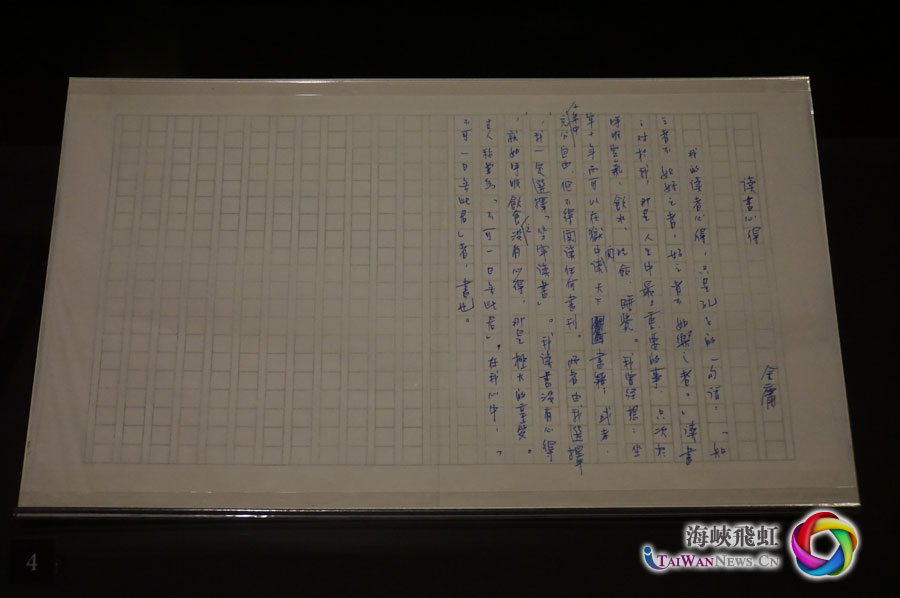 读書心得
金庸
我的读書心得，只是孔子的一句话：「知
之者不如好之者，好之者不如樂之者。」读書
之对於我，那是人生中最重要的事，只次於
呼吸空氣、飲水、吃飯、睡覺。我曾经想：坐
牢十年而可以在獄中閱读天下書籍，或者，
十年中完全自由，但不得閱读任何書刊。两者由我選擇
，我一定選擇「坐牢读書」。我读書没有心得
，就如呼吸飲食之没有心得，那是極大的享受。
古人称竹为「不可一日无此君」。在我心中，「
不可一日无此君」者，書也。
4
海峽飛虹
iTAIWANNEWS.CN